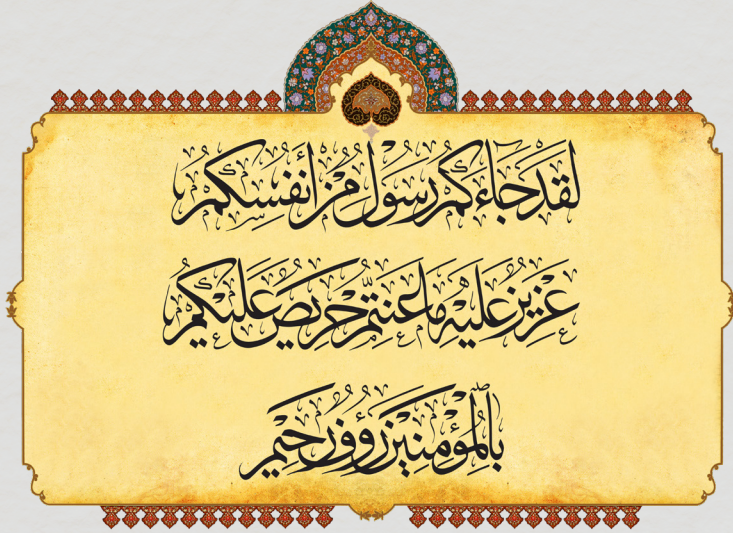 لَقَدْ جَاءَكُمْ رَسُولٌ مِّنْ أَنفُسِكُمْ
عَزِيزٌ عَلَيْهِ مَا عَنِتُّمْ حَرِيصٌ عَلَيْكُمْ
بِٱلْمُؤْمِنِينَ رَؤُوفٌ رَحِيمٌ